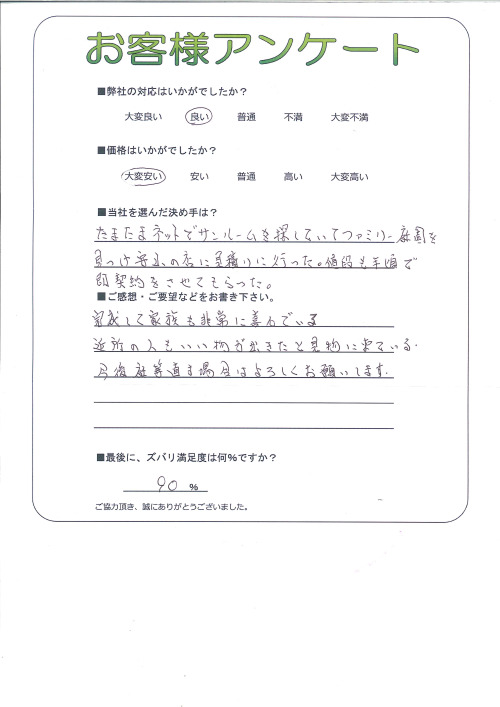 お客様アンケート
■弊社の対応はいかがでしたか？
大変良い 良い 普通 不満 大変不満
■価格はいかがでしたか？
大変安い 安い 普通 高い 大変高い
■当社を選んだ決め手は？
たまたまネットでサンルームを探していてファミリー庭園を
見つけ の店に見積りに行った。値段も手頃で
即契約をさせてもらった。
■ご感想・ご要望などをお書き下さい。
完成して家族も非常に喜んでいる
近所の人もいい物が出きたと見物に来ている.
今後 場合はよろしくお願いします.
■最後に、ズバリ満足度は何％ですか？
90 ％
ご協力頂き、誠にありがとうございました。